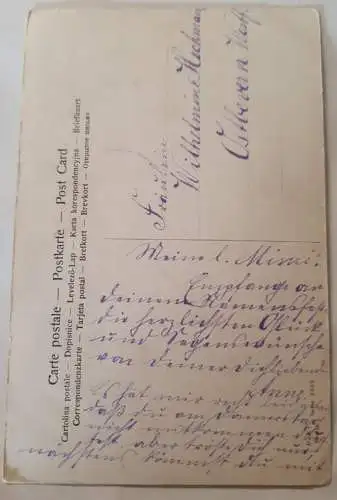 Carte postale — Postkarte — Post Card
Cartolina postale — Dopisnice — Levelező-Lap — Karta korespondencyjna — Briefkaart
Correspondenzkarte — Tarjeta postal — Brefkort — Brevkort — Открытое письмо
Fräulein
Wilhelmine
Ostbevern
Meine l. Minni!
Empfange an
deinem Namensfest
die herzlichsten Glück
und Segenswünsche
von deiner dichliebend
Änne.
Es hat mir recht leid
daß du am Donnerstag
nicht mitkommen
aber tröste dich
nächstens kommst du mit